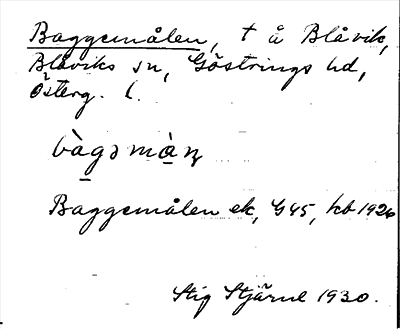 Baggemålen, t å Blåvik,
Blåviks sn, Göstrings hd,
Österg. l.
bàgəmàṇ
Baggemålen ek, G45, hb 1926
Stig Stjärne 1930.